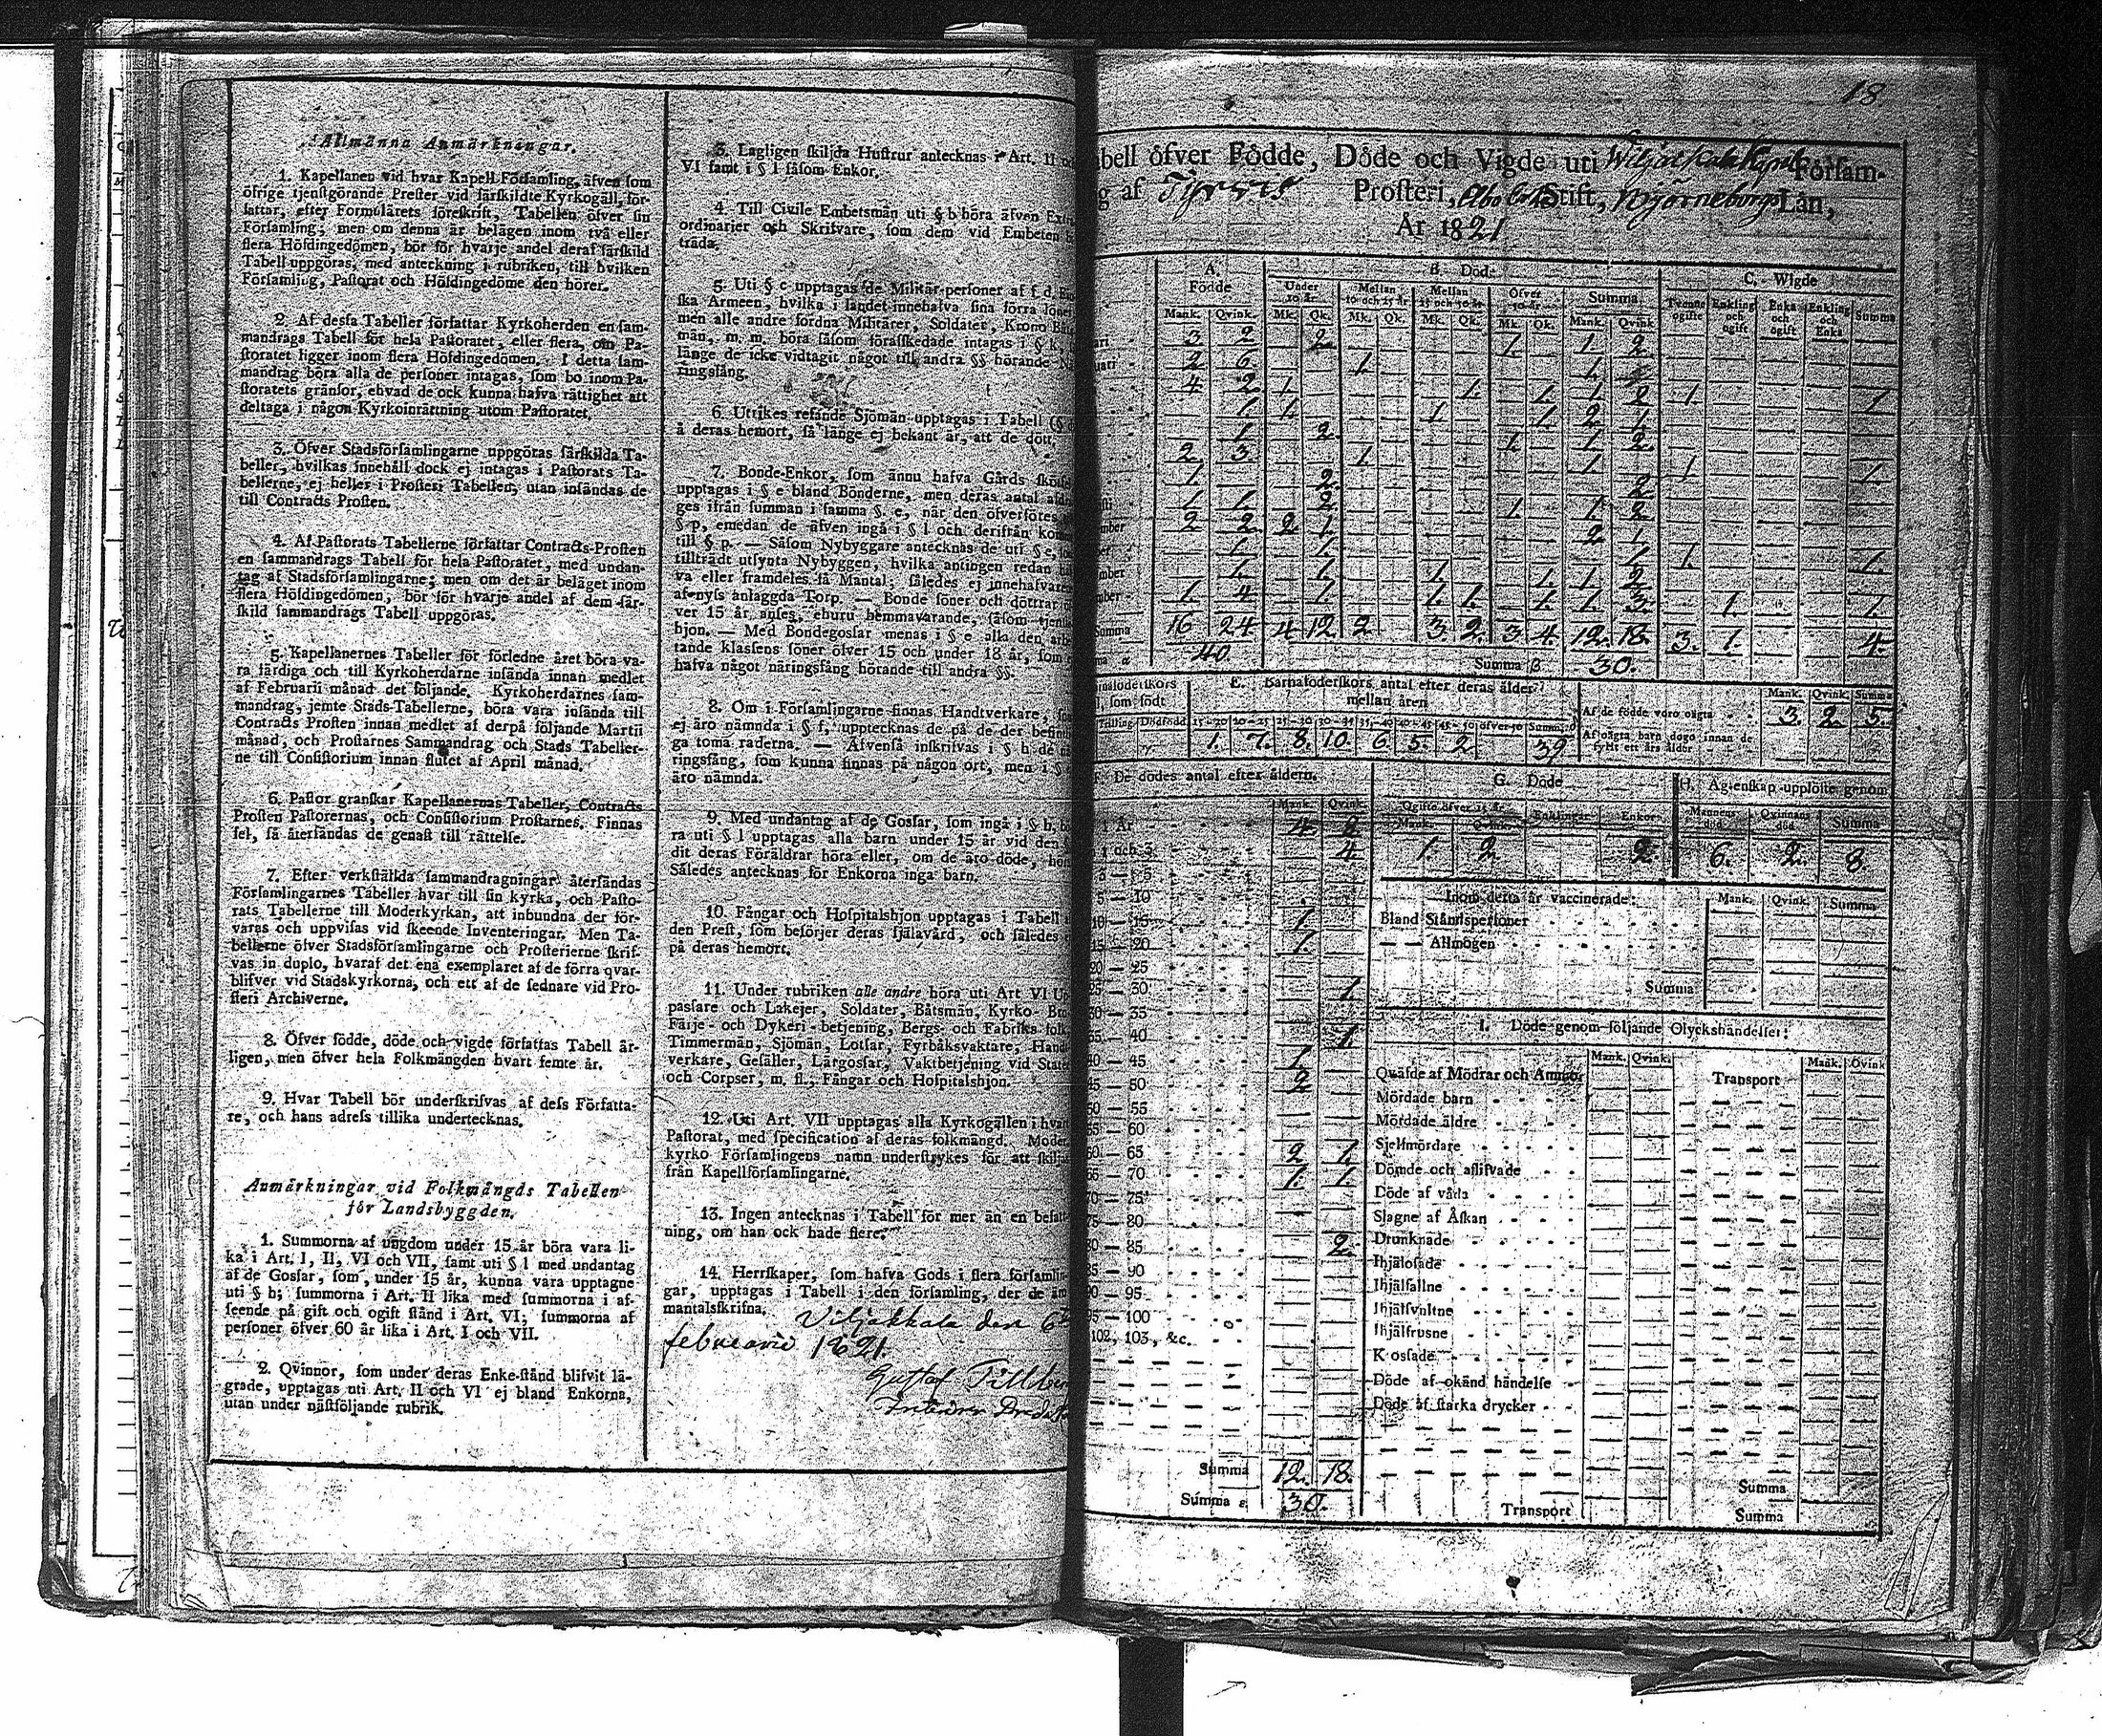 Allmänna Anmärkningar.
1. Kapellanen vid hvar Kapell-Församling, äfven som
öfrige tjenstgörande Prester vid särskildte Kyrkogäll, för-
fattar, efter Formulärets föreskrift, Tabellen öfver sin
Församling; men om denna är belägen inom två eller
flera Höfdingedömen, bör för hvarje andel deraf särskild
Tabell uppgöras, med anteckning i rubriken, till hvilken
Församling, Pastorat och Höfdingedöme den hörer.
2. Af dessa Tabeller författar Kyrkoherden en sam-
mandrags Tabell för hela Pastoratet, eller flera, om Pa-
storatet ligger inom flera Höfdingedömen. I detta sam-
mandrag böra alla de personer intagas, som bo inom Pa-
storatets gränsor, ehvad de ock kunna hafva rättighet att
deltaga i någon Kyrkoinrättning utom Pastoratet.
3. Öfver Stadsförsamlingarne uppgöras särskilda Ta-
beller, hvilkas innehåll dock ej intagas i Pastorats Ta-
bellerne, ej heller i Prosteri Tabellen, utan insändas de
till Contracts Prosten.
4. Af Pastorats Tabellerne författar Contracts-Prosten
en sammandrags Tabell för hela Pastoratet, med undan-
tag af Stadsförsamlingarne; men om det är beläget inom
flera Höfdingedömen, bör för hvarje andel af dem sär-
skild sammandrags Tabell uppgöras.
5. Kapellanernes Tabeller för förledne året böra va-
ra färdiga och till Kyrkoherdarne insända innan medlet
af Februarii månad det följande. Kyrkoherdarnes sam-
mandrag, jemte Stads-Tabellerne, böra vara insända till
Contracts Prosten innan medlet af derpå följande Martii
månad, och Prostarnes Sammandrag och Stads Tabeller-
ne till Consistorium innan slutet af April månad.
6. Pastor granskar Kapellanernas Tabeller, Contracts
Prosten Pastorernas, och Consistorium Prostarnes. Finnas
fel, så återsändas de genast till rättelse.
7. Efter verkställda sammandragningar återsändas
Församlingarnes Tabeller hvar till sin kyrka, och Pasto-
rats Tabellerne till Moderkyrkan, att inbundna der för-
varas och uppvisas vid skeende Inventeringar. Men Ta-
bellerne öfver Stadsförsamlingarne och Prosterierne skrif-
vas in duplo, hvaraf det ena exemplaret af de förra qvar-
blifver vid Stadskyrkorna, och ett af de sednare vid Pro-
steri Archiverne.
8. Öfver födde, döde och vigde författas Tabell år-
ligen, men öfver hela Folkmängden hvart femte år.
9. Hvar Tabell bör underskrifvas af dess Författa-
re, och hans adress tillika undertecknas.
Anmärkningar vid Folkmängds Tabellen
för Landsbyggden.
1. Summorna af ungdom under 15 år böra vara li-
ka i Art. I, II, VI och VII, samt uti § l med undantag
af de Gossar, som, under 15 år, kunna vara upptagne
uti § h; summorna i Art. II lika med summorna i af-
seende på gift och ogift stånd i Art. VI; summorna af
personer öfver 60 år lika i Art. I och VII.
2. Qvinnor, som under deras Enke-stånd blifvit lä-
grade, upptagas uti Art. II och VI ej bland Enkorna,
utan under nästföljande rubrik.
3. Lagligen skiljda Hustrur antecknas i Art. II
VI samt i § l såsom Enkor.
4. Till Civile Embetsmän uti § b böra äfven
ordinarier och Skrifvare, som dem vid Embeten
träda.
5. Uti § c upptagas de Militär personer af f. d.
ska Armeen, hvilka i landet innehafva sina förra
men alle andre fordna Militärer, Soldater, Krono
män, m. m. böra såsom förafskedade intagas i § k,
länge de icke vidtagit något till andra §§ hörande
ringsfång.
6. Utrikes resande Sjömän upptagas i Tabell
å deras hemort, så länge ej bekant är, att de dött.
7. Bonde-Enkor, som ännu hafva Gårds
upptagas i § e bland Bönderne, men deras antal
ges ifrån summan i samma §. e, när den öfverföres
§ p, emedan de äfven ingå i § l och derifrån
till § p. — Såsom Nybyggare antecknas de uti § e,
tillträdt utsynta Nybyggen, hvilka antingen redan
va eller framdeles få Mantal; således ej innehafvare
af nyss anlaggda Torp. — Bonde söner och döttrar
ver 15 år anses, ehuru hemmavarande, såsom
hjon. — Med Bondegossar menas i § e alla den
tande klassens söner öfver 15 och under 18 år, som
hafva något näringsfång hörande till andra §§.
8. Om i Församlingarne finnas Handtverkare,
ej äro nämnda i § f, upptecknas de på de der
ga toma raderna. — Äfvenså inskrifvas i § h de
ringsfång, som kunna finnas på någon ort, men i §
äro nämnda.
9. Med undantag af de Gossar, som ingå i § h,
ra uti § l upptagas alla barn under 15 år vid den
dit deras Föräldrar höra eller, om de äro döde,
Således antecknas för Enkorna inga barn.
10. Fångar och Hospitalshjon upptagas i Tabell
den Prest, som besörjer deras själavård, och således
på deras hemort.
11. Under rubriken alle andre böra uti Art VI
passare och Lakejer, Soldater, Båtsmän, Kyrko-
Färje- och Dykeri-betjening, Bergs- och Fabriks-
Timmermän, Sjömän, Lotsar, Fyrbåksvaktare,
verkare, Gesäller, Lärgossar, Vaktbetjening vid
och Corpser, m. fl., Fångar och Hospitalshjon.
12. Uti Art. VII upptagas alla Kyrkogällen i
Pastorat, med specification af deras folkmängd.
kyrko Församlingens namn understrykes för att
från Kapellförsamlingarne.
13. Ingen antecknas i Tabell för mer än en
ning, om han ock hade flere.
14. Herrskaper, som hafva Gods i flera
gar, upptagas i Tabell i den församling, der de
mantalsskrifna.
Viljakkala den 6
februarii 1821.
Gustaf
18
bell öfver Födde, Döde och Vigde uti Wiljakkala Kapell Församl-
g af Tyrvis Prosteri, Åbo Erke Stift, Björneborgs Län,
År 1821
A. Födde B. Död: C. Wigde
Under 10 år. Mellan 10 och 25 år Mellan 25 och 50 år Öfver 50 år. Summa Tvenne ogifte Enkling och ogift Enka och ogift Enkling och Enka Summa
Mank. Qvink. Mk. Qk. Mk. Qk. Mk. Qk. Mk. Qk. Mank. Qvink
3 2 2 1 1 2
2 6 1 1
4 2 1 1 1 1 2 1 1
1 1 1 1 2 1
1 2 1 1 2
2 3 1 1 1 1
1 2 2
1 1 2 1 1 2
2 2 2 1 2 1
1 1 1 1 1
1 1 1 1 1 2
1 4 1 1 1 1 1 3 1 1
Summa 16 24 4 12 2 3 2 3 4 12 18 3 1 4
40. Summa β 30.
E. Barnaföderskors antal efter deras ålder
mellan åren
15-20 20-25 25-30 30-35 35-40 40-45 45-50 öfver 50 Summa
1. 7. 8. 10. 6. 5. 2 39
Mank. Qvink. Summa
Af de födde voro oägta 3. 2. 5.
Af oägta barn dogo innan de
fyllt ett års ålder
F. De dödes antal efter åldern.
Mank. Qvink.
1 År 4. 2
1 och 3 4.
3 — 5
5 — 10
10 — 15 1
15 — 20 1.
20 — 25
25 — 30 1.
30 — 35
35 — 40 1.
40 — 45 1.
45 — 50 2
50 — 55
55 — 60
60 — 65 2 1.
65 — 70 1. 1.
70 — 75
75 — 80
80 — 85 2.
85 — 90
90 — 95
95 — 100
102, 103, &c.
Summa 12. 18.
Summa ε 30.
G. Döde
Ogifte öfver 15 år. Enklingar Enkor
Mank. Qvink.
1. 2 2.
H. Ägtenskap upplöste genom
Mannens död. Qvinnans död. Summa
6. 2. 8.
Inom detta år vaccinerade: Mank. Qvink. Summa
Bland Ståndspersoner
— — Allmogen
Summa
I. Döde genom följande Olyckshändelser:
Mank. Qvink. Mank. Qvink
Qväfde af Mödrar och Ammor Transport
Mördade barn
Mördade äldre
Sjelfmördare
Dömde och aflifvade
Döde af våda
Slagne af Åskan
Drunknade
Ihjälosade
Ihjälfallne
Ihjälsvultne
Ihjälfrusne
K osfade
Döde af okänd händelse
Döde af starka drycker
Summa
Transport Summa